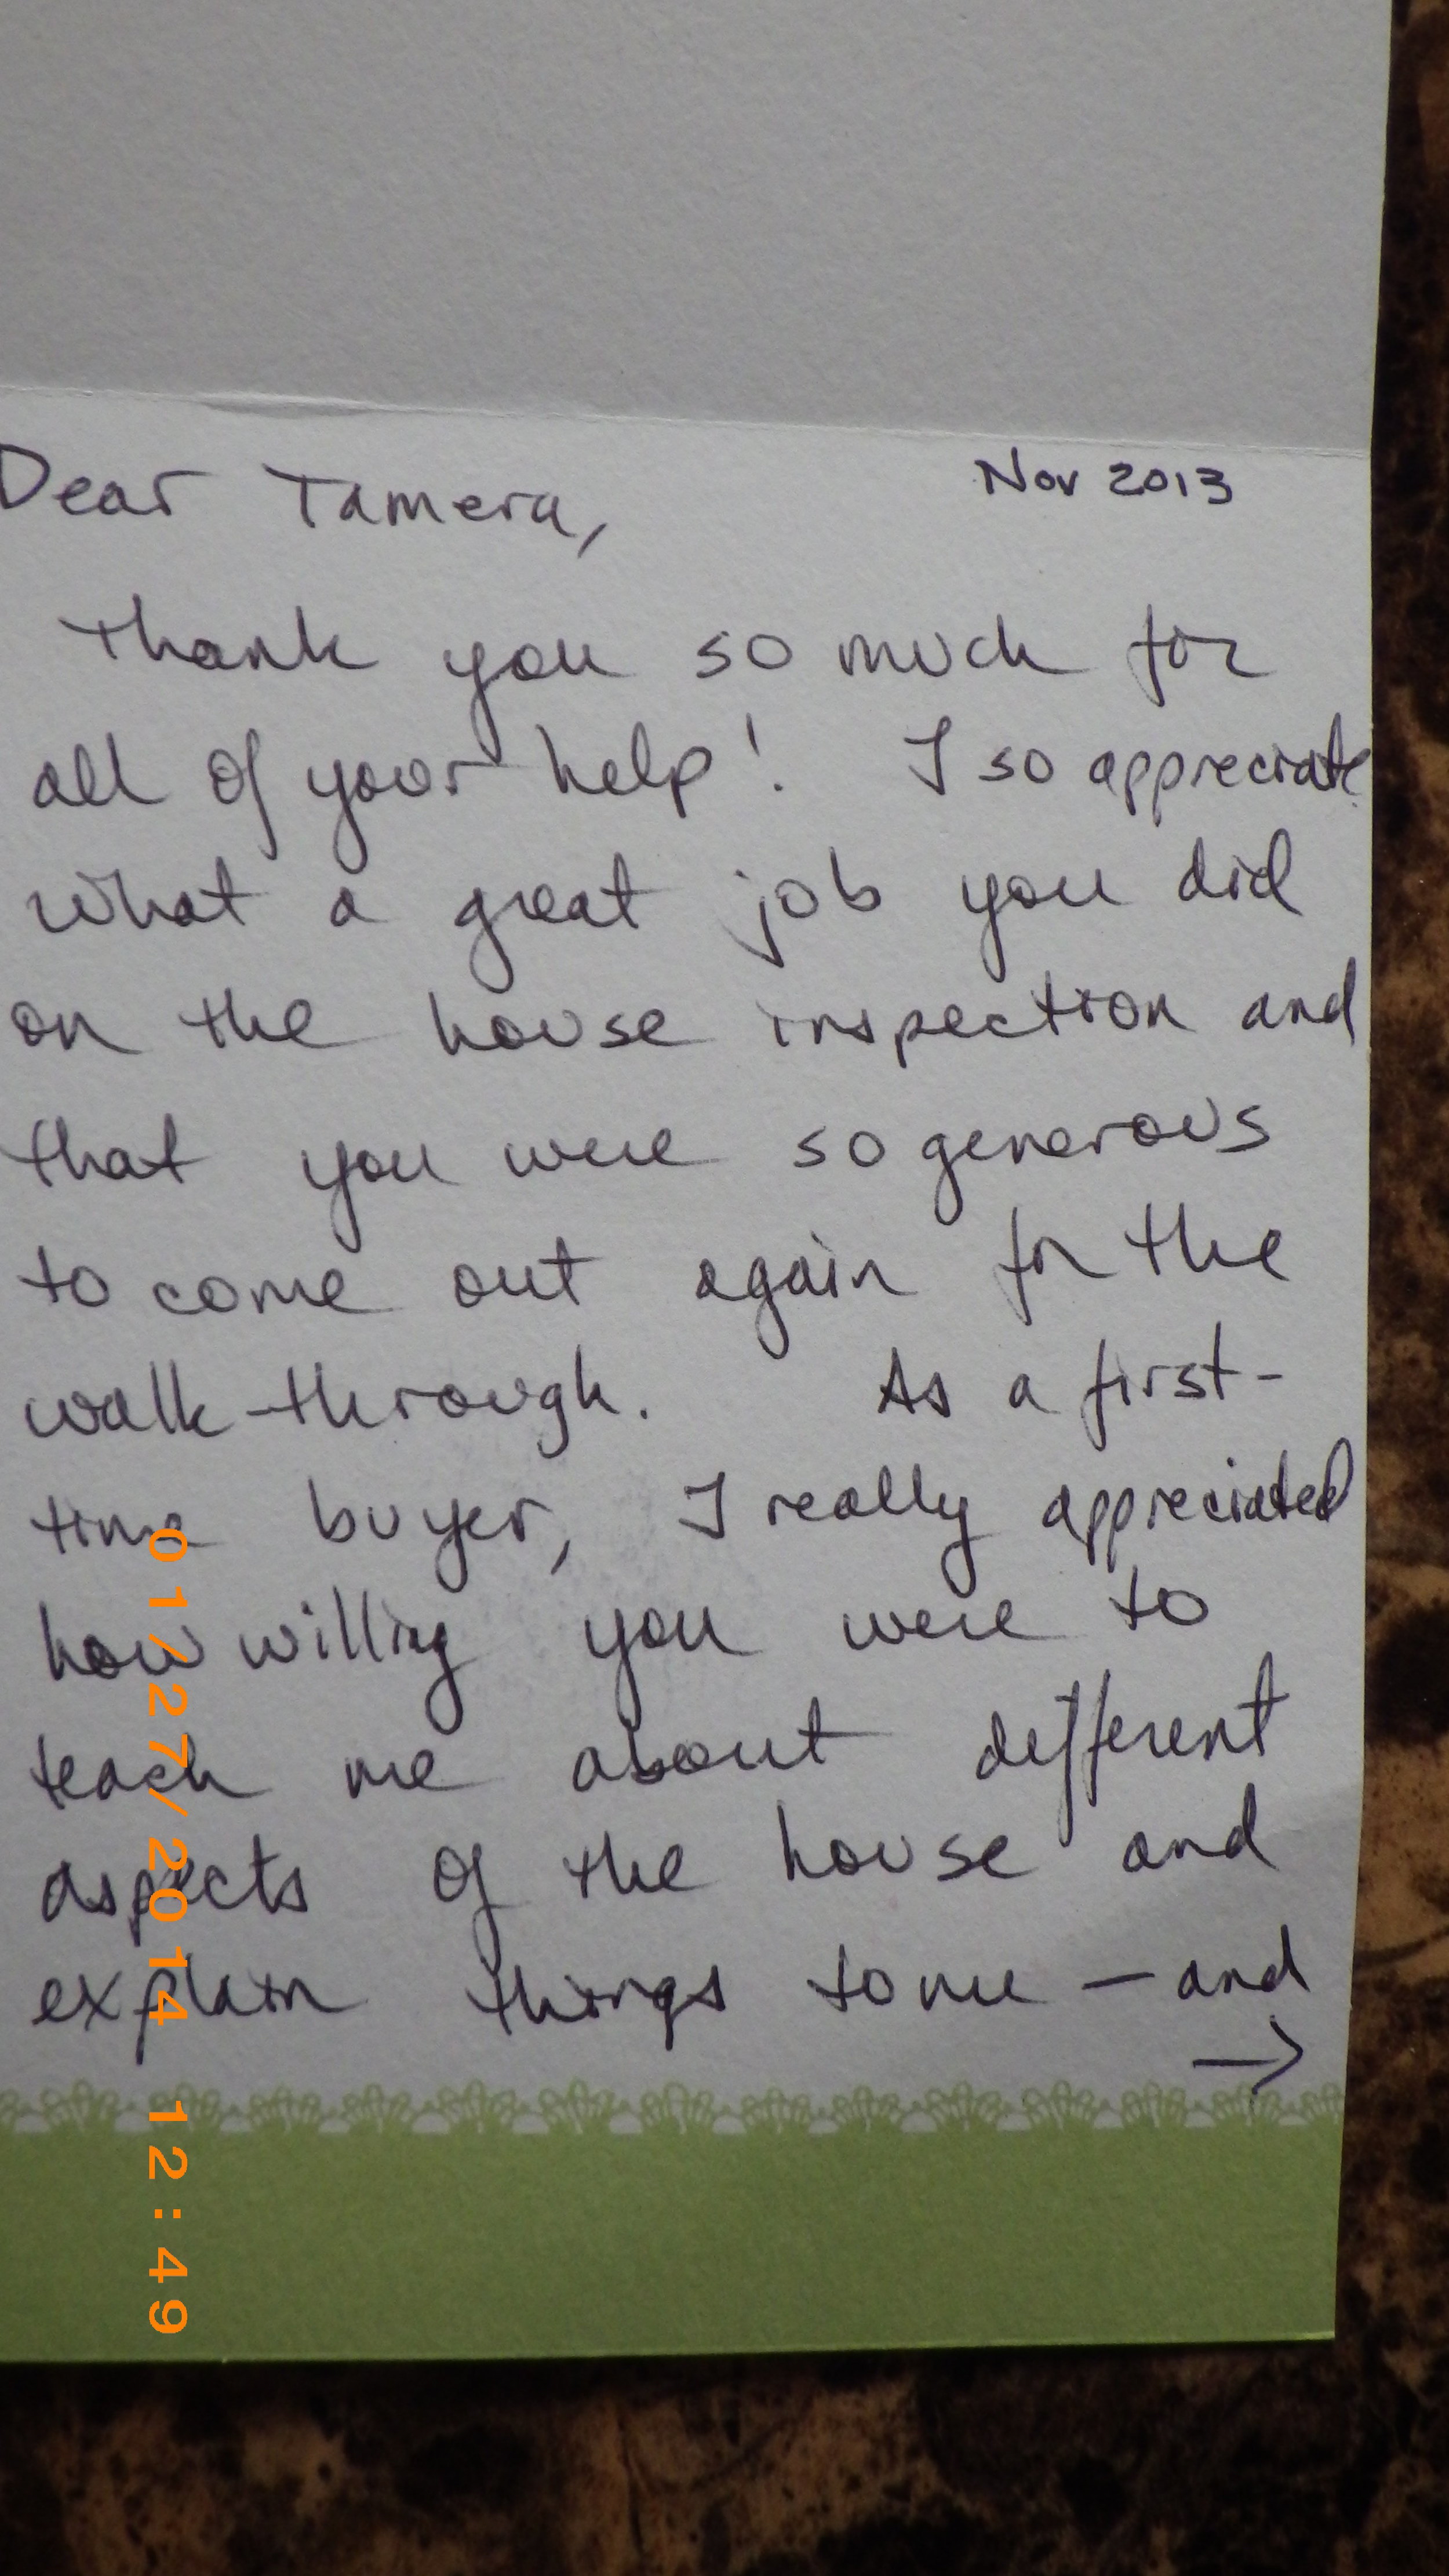 Dear Tamera, Nov 2013
Thank you so much for
all of your help! I so appreciate
what a great job you did
on the house inspection and
that you were so generous
to come out again for the
walk-through. As a first-
time buyer, I really appreciated
how willing you were to
teach me about different
aspects of the house and
explain things to me — and
→
01/27/2014 12:49